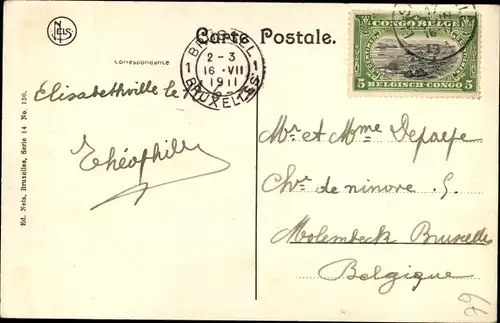 NELS
Carte Postale.
Correspondance
BRUSSEL 1
2-3
16 · VII
1911
1 BRUXELLES
CONGO BELGE
5 BELGISCH-CONGO 5
Elisabethville le
Théophile
Mr et Mme Depaepe
Chée de ninove 9.
Molembeck Bruxelles
Belgique
Ed. Nels, Bruxelles, Serie 14 No. 130.